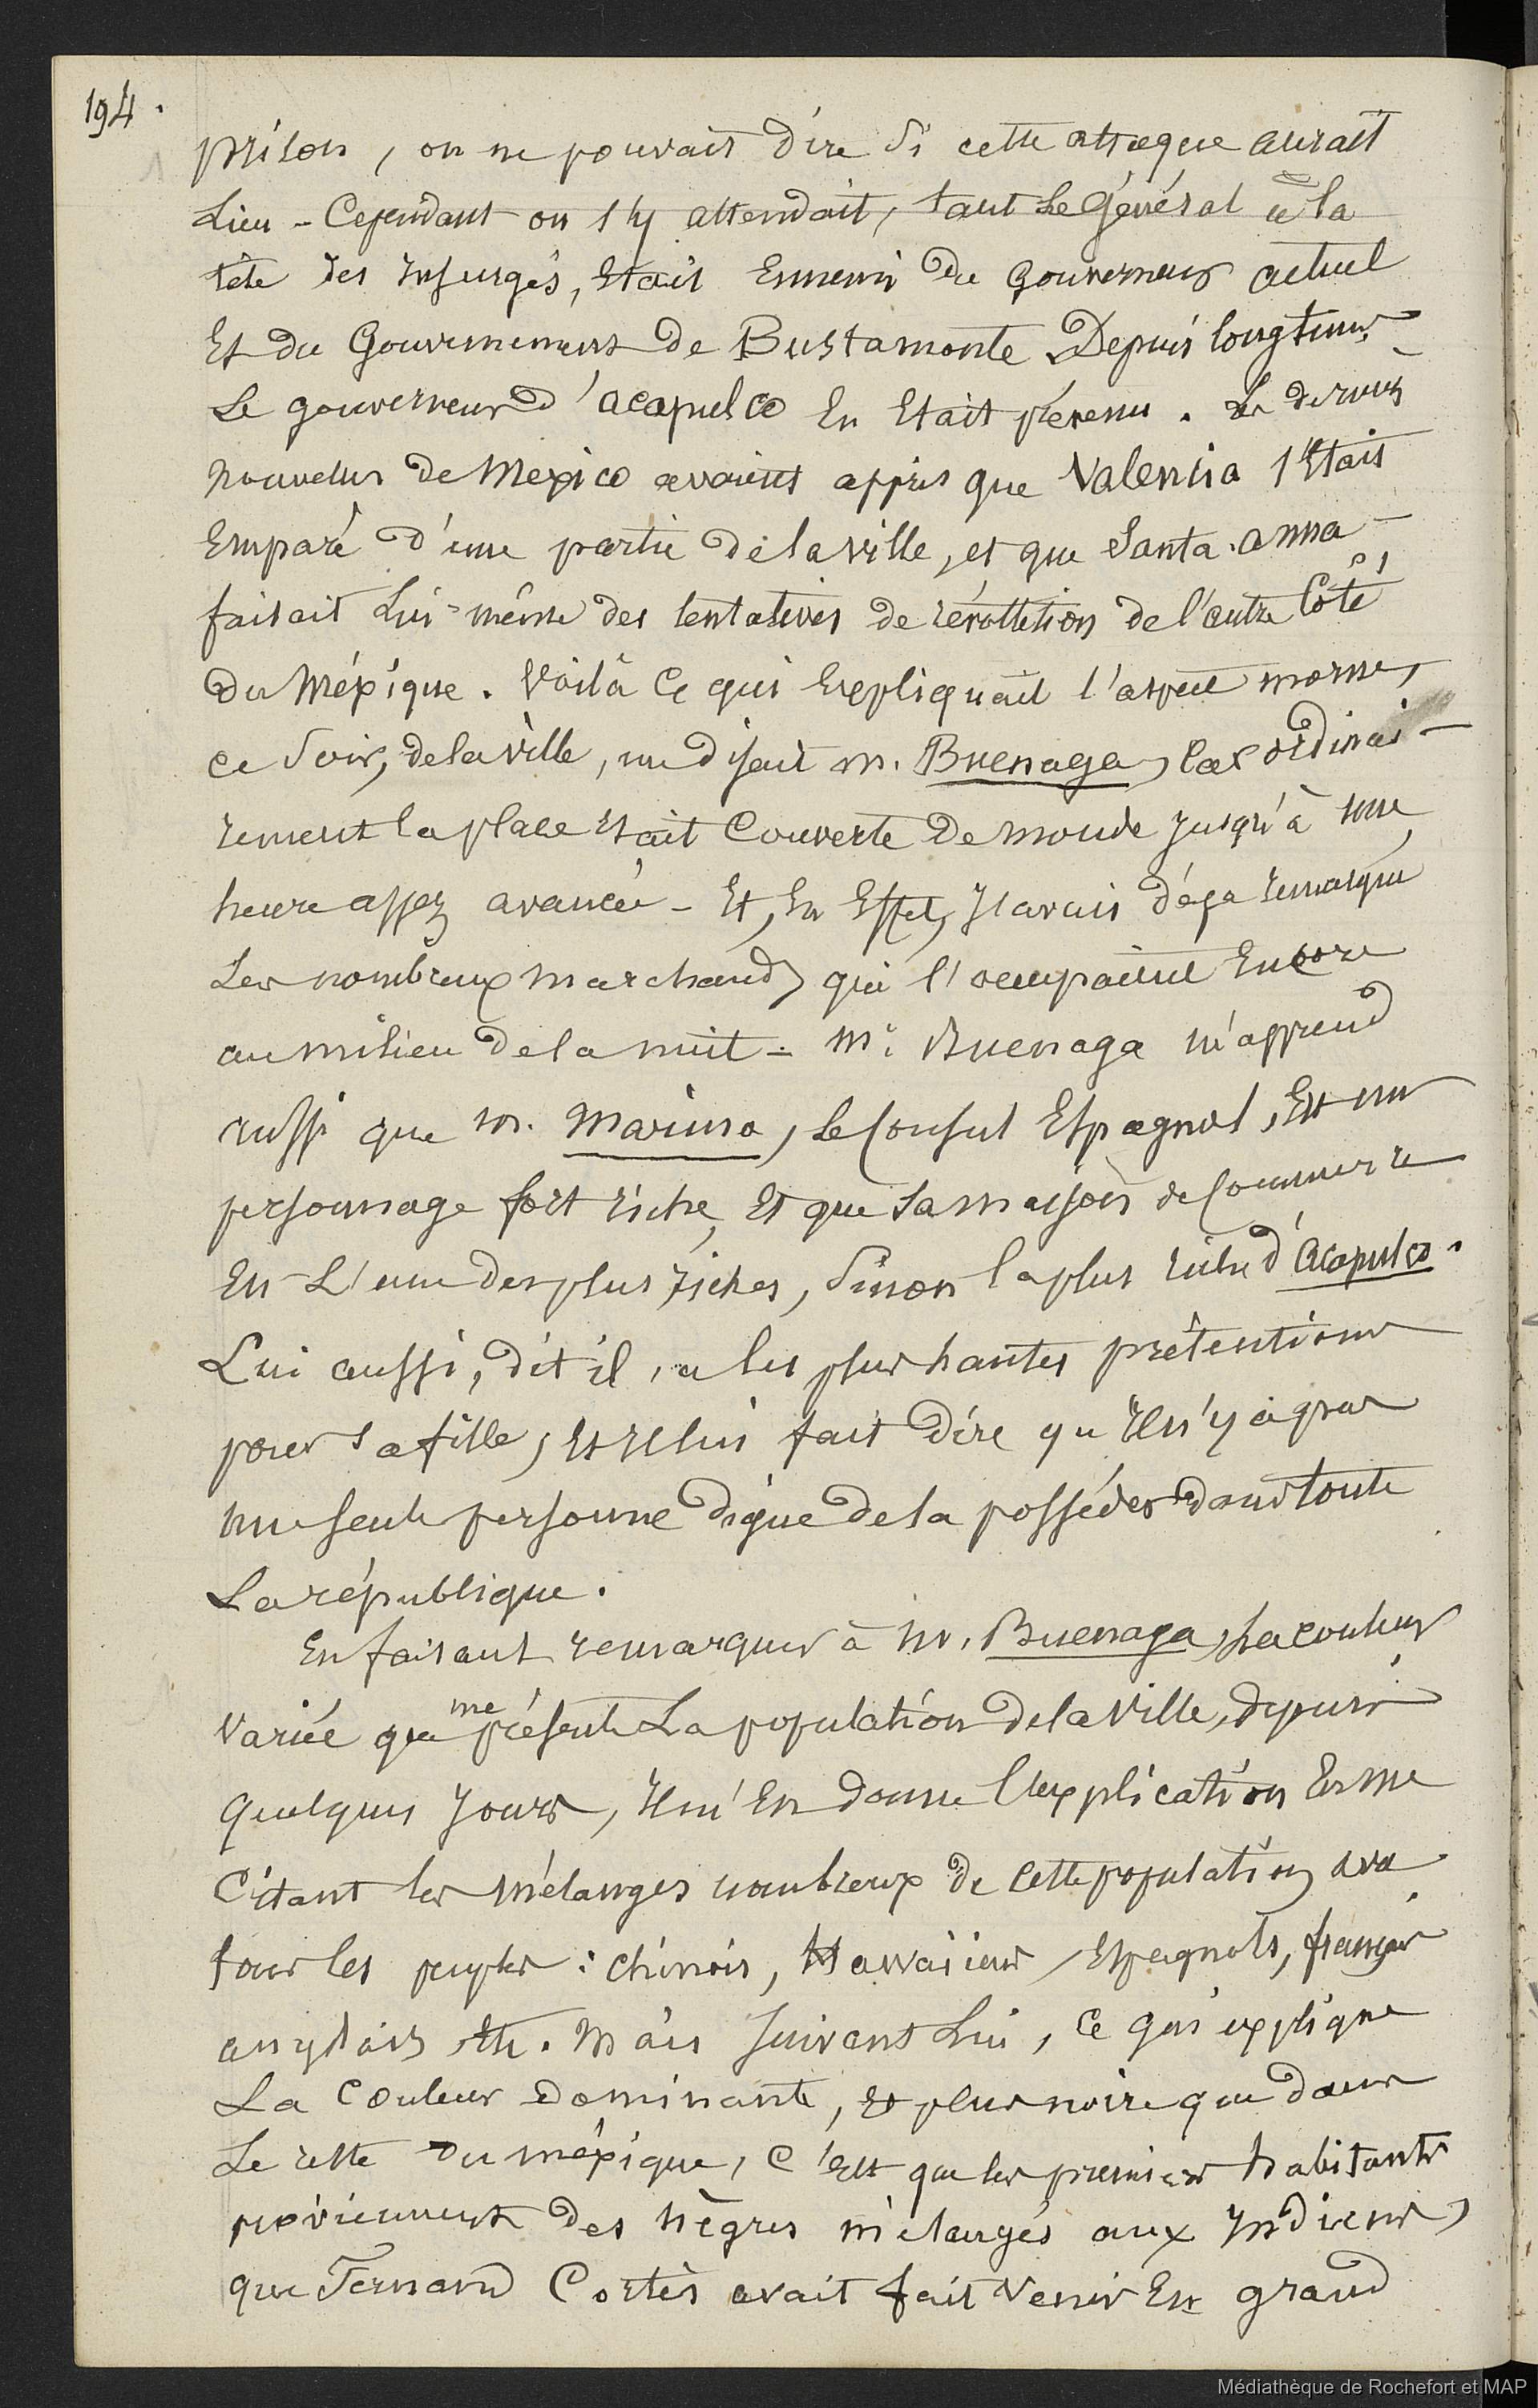 194.
prison, on ne pouvait dire si cette attaque aurait
Lieu - Cependant on s'y attendait, tant Le Général à la
tête des insurgés, Etait Ennemi du Gouverneur actuel
Et du Gouvernement de Bustamonte Depuis longtems
Le gouverneur d'acapulco En Etait prévenu. Les dernières
nouvelles de Mexico avaient appris que Valencia s'Etait
Emparé d'une partie de la ville, et que Santa-anna
faisait Lui-même des tentatives de révolution de l'autre Côté
du Méxique. Voilà Ce qui Expliquait l'aspect morne,
ce Soir, de la ville, me disait m. Buenaga, Car ordinai-
rement la place Etait Couverte de monde jusqu'à une
heure assez avancée - Et, En Effet, J'avais déja remarqué
Les nombreux marchands qui l'occupaient Encore
au milieu de la nuit - Mr Buenaga m'apprend
aussi que m. Marino, Le Consul Espagnol, Est un
personnage fort riche, Et que sa maison de Commerce
En L'une des plus riches, Sinon la plus riche d'Acapulco.
Lui aussi, dit il, a les plus hautes prétentions
pour sa fille, Et Il lui fait dire qu'Il n'y a pas
une seule personne digne de la posséder dans toute
La république.
En faisant remarquer à m. Buenaga, La couleur
variée que me présente La population de la Ville, depuis
quelques Jours, Il m'En donne l'explication En me
Citant les mélanges nombreux de Cette population avec
tous les peuples : chinois, Hawaiiens, Espagnols, français
anglais etc. Mais Suivant Lui, Ce qui explique
La Couleur Dominante, Et plus noire que dans
Le reste du méxique, C'Est que les premiers habitants
proviennent des nègres mélangés aux Indiens,
que Fernand Cortès avait fait Venir En grand
Médiathèque de Rochefort et MAP